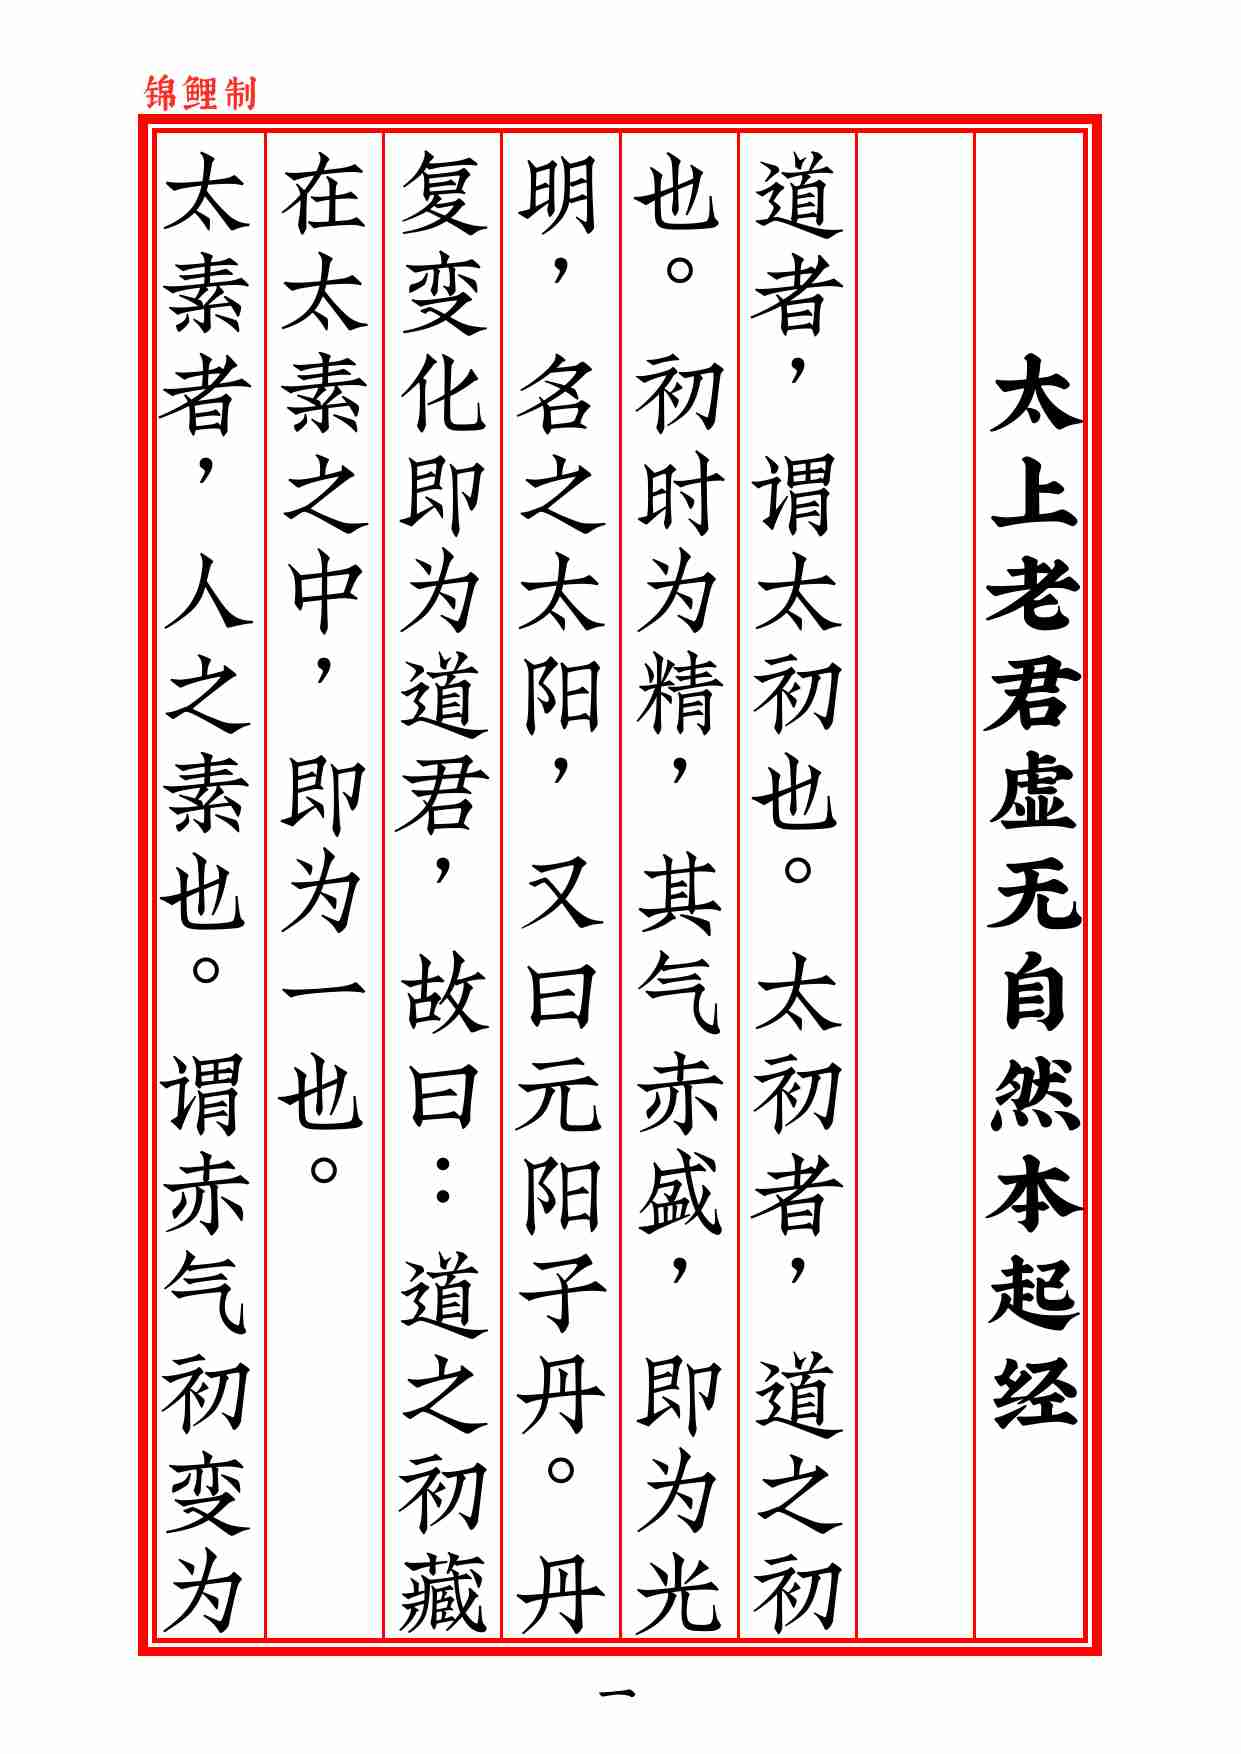 锦鲤制
太上老君虚无自然本起经
道者，谓太初也。太初者，道之初
也。初时为精，其气赤盛，即为光
明，名之太阳，又曰元阳子丹。丹
复变化即为道君，故曰：道之初藏
在太素之中，即为一也。
太素者，人之素也。谓赤气初变为
一